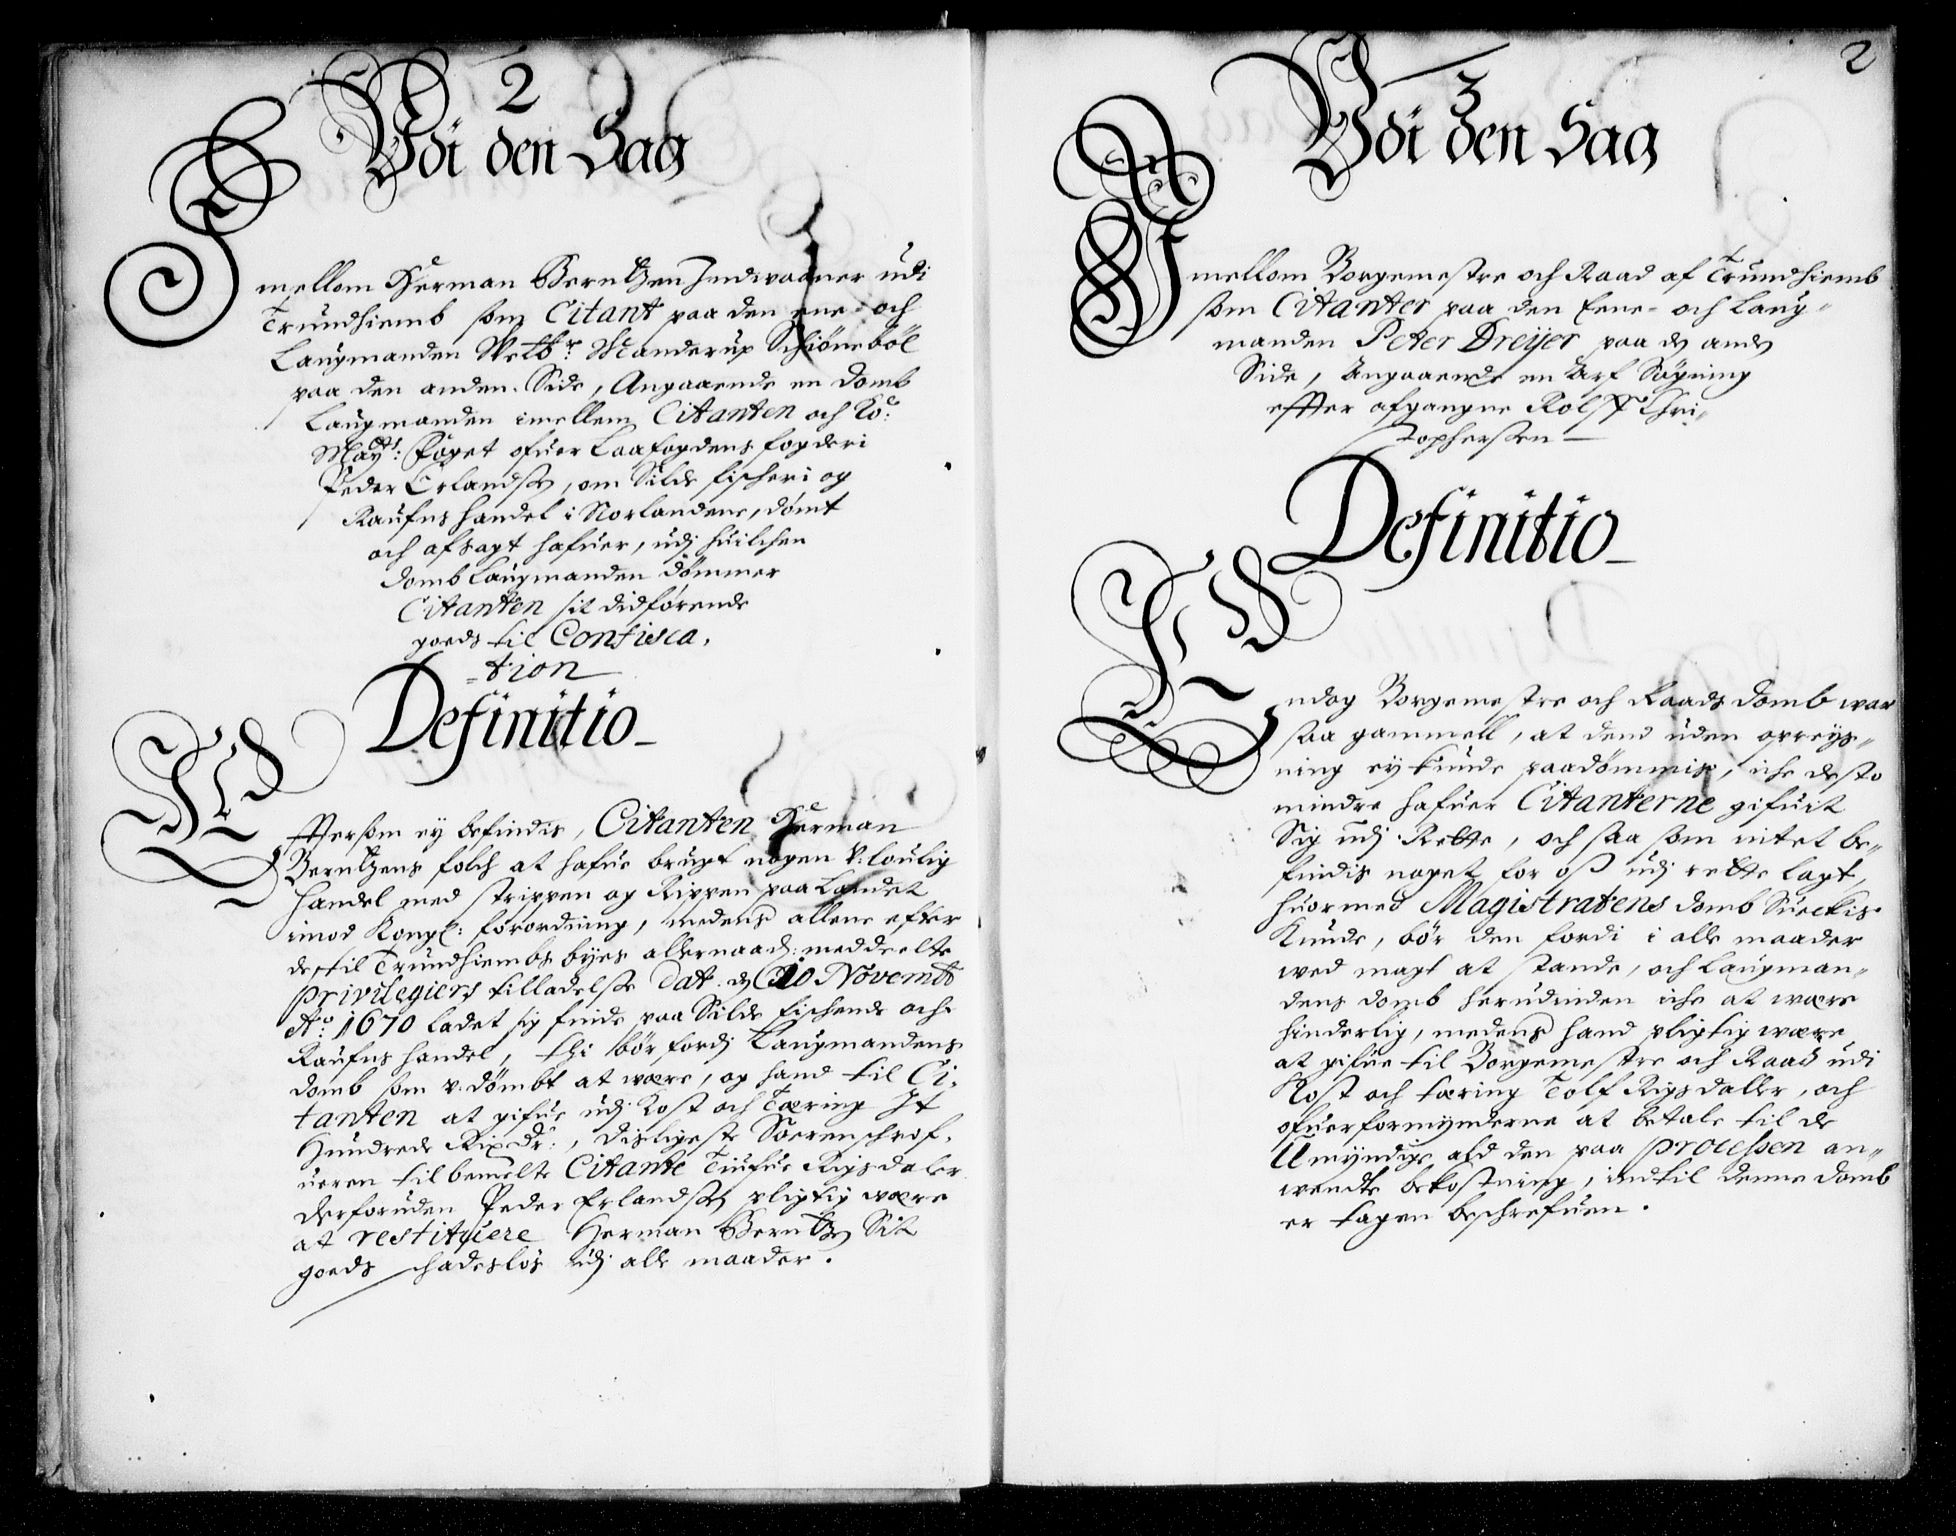 2
Vdi den Sag
Imellom Herman Berntzen Indwaaner udi
Trundhiemb som Citant paa den ene och
Laugmanden Welb:r Manderup Schiönneböl
paa den anden Side, Angaaende en domb
Laugmanden imellem Citanten och Ko:
May:ts: Foget ofuer Laafogdens fogderi
Peder Erlandss:, om Silde fischeri og
Raufns handel i Norlandene, dömt
och afsagt hafuer, udj huilchen
domb Laugmanden dömmer
Citanten sit didförende
goeds til Confisca,
=tion
Definitio
Efftersom ey befindis, Citanten Herman
Berntzens folch at hafue brugt nogen v:loulig
handel med strippen og Kippen paa Landet
imod Kongl: forordning, medens allene efter
de til Trundhiembs byes allernaad: meddeelte
Privilegiers tilladelse Dat. d 10 Novembr
A:o 1670 ladet sig finde paa Silde fischende och
Raufns handel, thi bör fordj Laugmandens
domb som v:dömbt at være, og hand til Ci,
tanten at gifue udj Kost och Tæring It
Hundrede Rixdr:, disligeste Sorenschrif,
ueren til bemelte Citante Tiufue Rigsdaler
derforuden Peder Erlandss: pligtig være
at restituere Herman Berntz: Sit
goeds schadeslös udj alle maader.
2
3
Vdi den Sag
Imellom Borgemestre och Raad af Trundhiemb
som Citanter paa den Eene- och Laug-
manden Peter Dreyer paa d: and:
Side, Angaaende en Arf Søgning
effter afgangne Rolff Chri-
stophersen
Definitio
Endog Borgemestre och Raads domb war
saa gammell, at dend uden opreys-
ning ey kunde paadömmis, iche desto
mindre hafuer Citanterne gifuit
Sig udj Rette, och saa som intet be-
findis noget for oss udj rette lagt,
huormed Magistratens domb Suechis
Kunde, bör den fordi i alle maader
wed magt at stande, och Laugman-
dens domb herudinden iche at være
hinderlig, medens hand pligtig være
at gifue til Borgemestre och Raad udi
Kost och tæring Tolf Rigsdaller, och
ofuerformynderne at betale til de
Umyndige ald den paa Processen an-
wendte bekostning, indtil denne domb
er tagen beschrefuen.